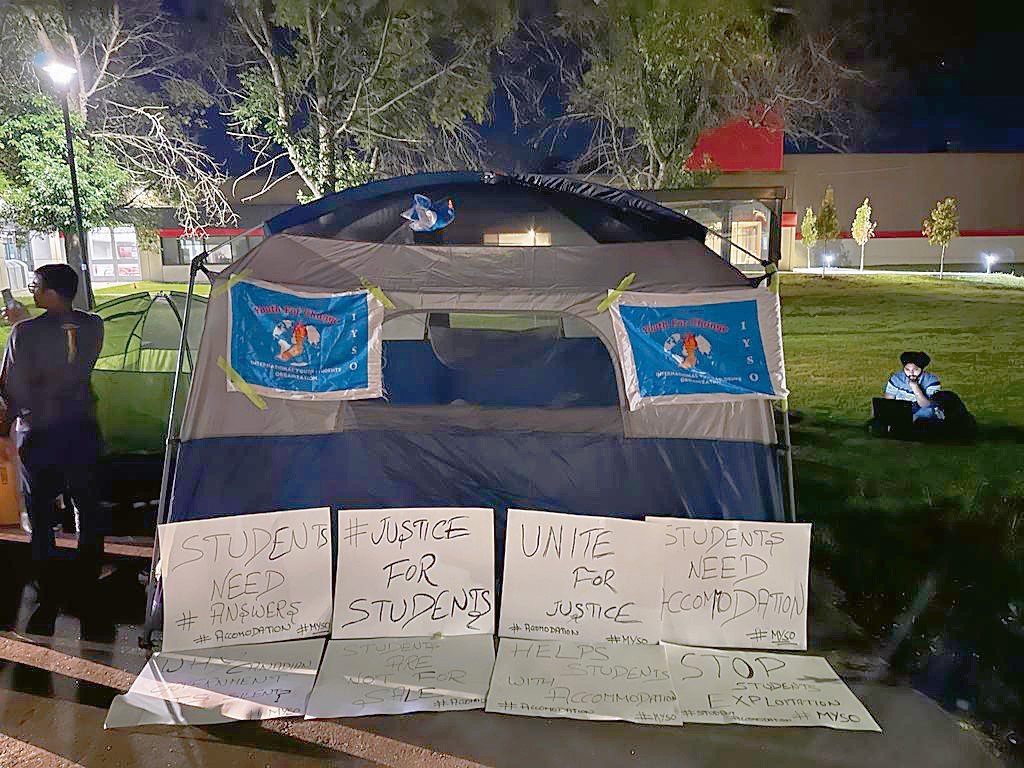 Youth For Change
IYSO
INTERNATIONAL YOUTH STUDENTS
ORGANISATION
Youth For Change
IYSO
INTERNATIONAL YOUTH STUDENTS
ORGANISATION
STUDENTS
NEED
# ANSWERS
# ACCOMODATION #MYSO
# JUSTICE
FOR
STUDENTS
UNITE
FOR
JUSTICE
# ACCOMODATION #MYSO
STUDENTS
NEED
ACCOMODATION
# MYSO
STUDENTS
ARE
NOT FOR
SALE
HELPS
STUDENTS
WITH ACCOMMODATION
# ACCOMODATION #MYSO
STOP
STUDENTS
EXPLOITATION
# MYSO